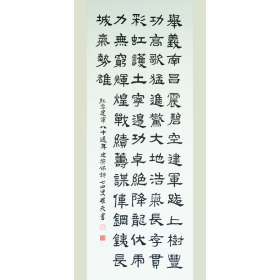 舉義南昌震碧空建軍路上樹豐
功高歌猛進驚大地浩氣長存貫
彩虹護土寧邊功卓絕降龍伏虎
力無窮輝煌戰績籌謀偉鋼鐵長
城氣勢雄
紀念建軍八十週年